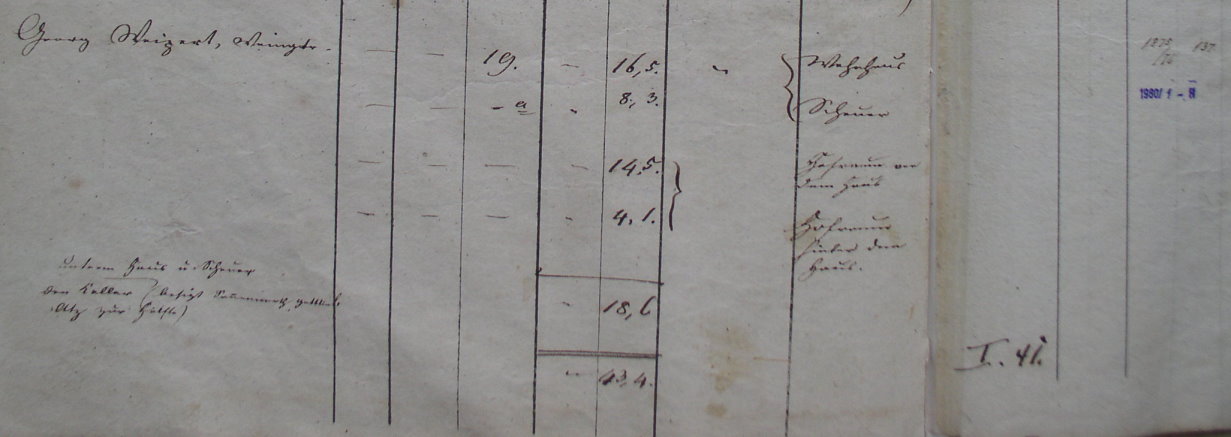 Georg Weigert, Weingtr.
— — 19. — 16,5. „ Wohnhaus
— — — a „ 8, 3. Scheuer
— — — — 14,5. Hofraum vor
dem Haus
— — — „ 4, 1. Hofraum
hinter dem
Haus.
unterm Haus u. Scheuer
den Keller besizt
zur Hälfte)
„ 18, 6
„ 43, 4.
I. 41.
1875/76 137
1980/1 - 8